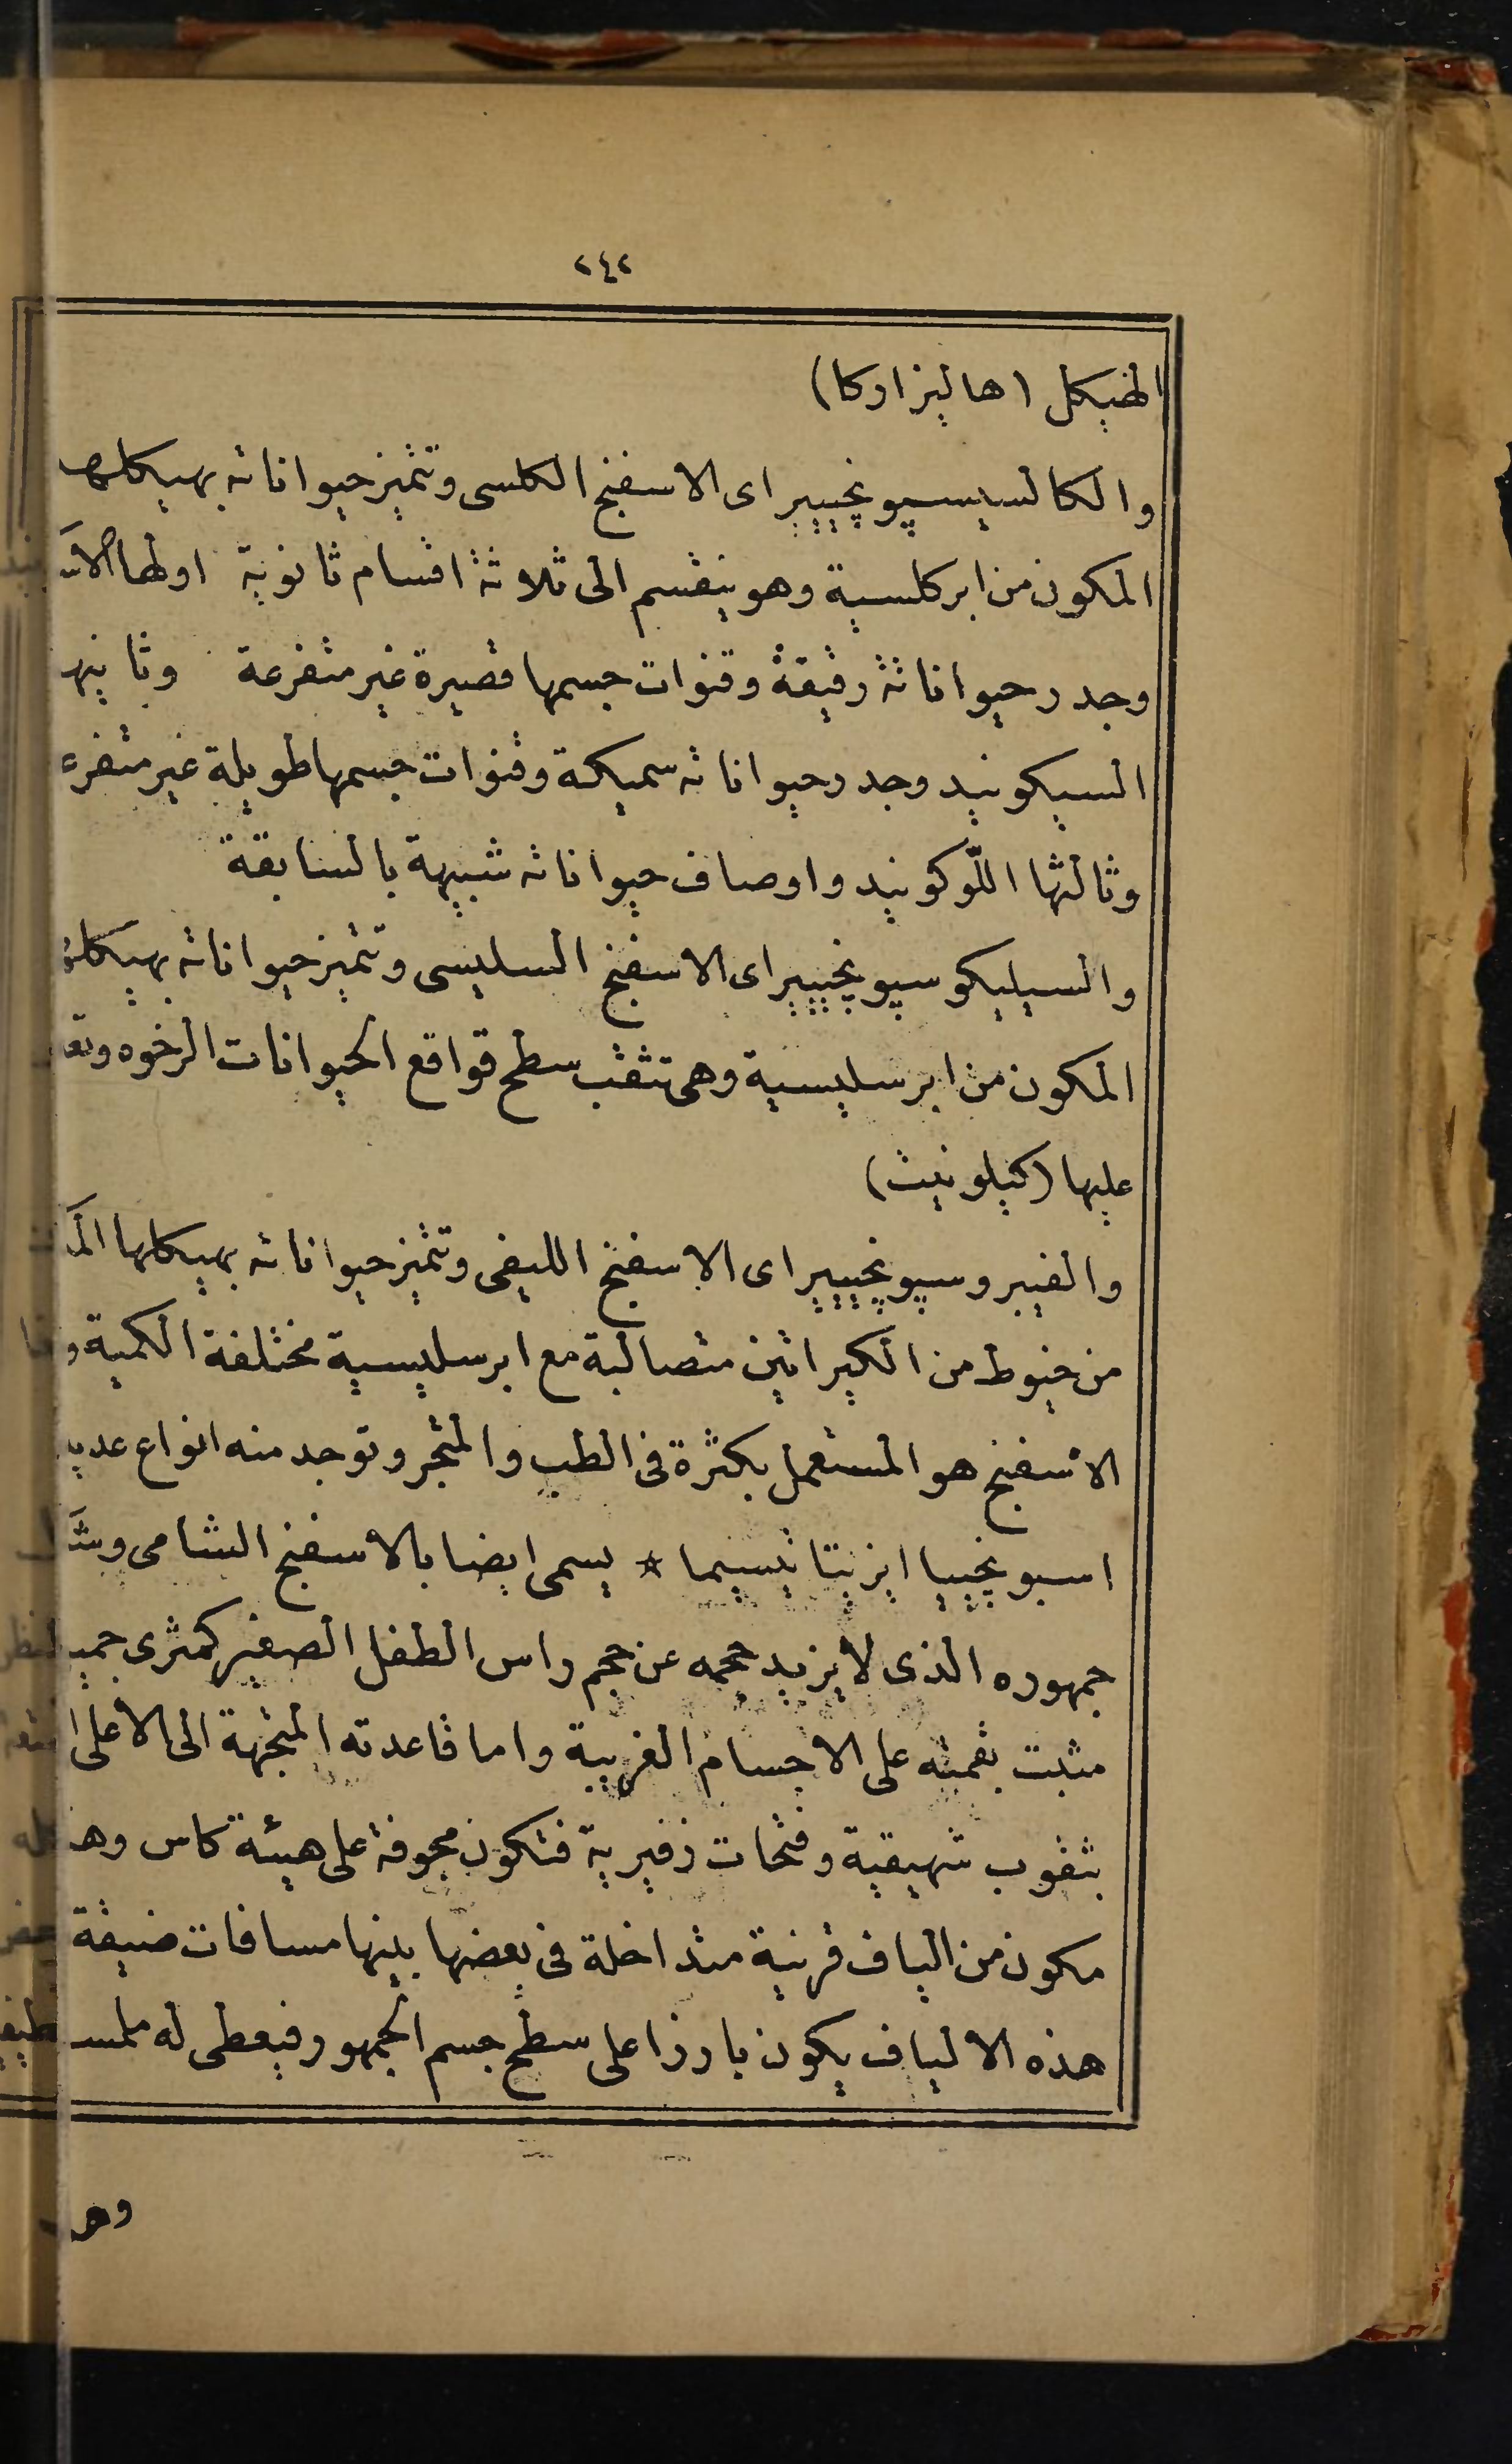 ٢٤٢
الهيكل (هاليزاركا)
والكالسيسپونچيير اى الاسفنج الكلسى وتتميز حيواناته بهيكلها
المكون من ابر كلسية وهو ينقسم الى ثلاثة اقسام ثانوية اولها
وجدر حيواناته رقيقة وقنوات جسمها قصيرة غير متفرعة وثانيها
السيكونيد وجدر حيواناته سميكة وقنوات جسمها طويلة غير
وثالثها اللوكونيد واوصاف حيواناته شبيهة بالسابقة
والسيليكوسپونچيير اى الاسفنج السليسى وتتميز حيواناته بهيكلها
المكون من ابر سليسية وهى تثقب سطح قواقع الحيوانات الرخوه
عليها (كيلونيث)
والفيبروسپونچيير اى الاسفنج الليفى وتتميز حيواناته بهيكلها
من خيوط من الكيراتين متصالبة مع ابر سليسية مختلفة الكمية
الاسفنج هو المستعمل بكثرة فى الطب والمتجر وتوجد منه انواع
اسبونچييا ايزيتاتيسيما * يسمى ايضا بالاسفنج الشامى
جمهوره الذى لا يزيد حجمه عن حجم راس الطفل الصغير كمثرى
مثبت بقمته على الاجسام الغريبة واما قاعدته المتجهة الى الاعلى
بثقوب شهيقية وفتحات زفيرية فتكون مجوفة على هيئة كاس
مكون من الياف قرنية متداخلة فى بعضها بينها مسافات ضيقة
هذه الالياف يكون بارزا على سطح جسم الجمهور فيعطى له ملمسا